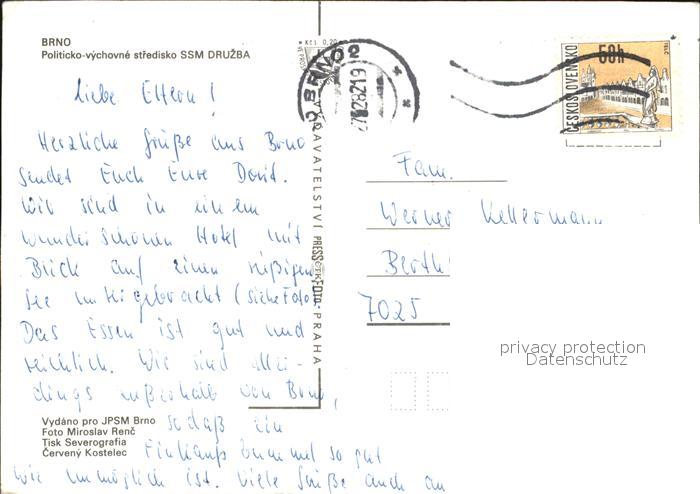 BRNO
Politicko-výchovné středisko SSM DRUŽBA
Liebe Eltern!
Herzliche Grüße aus Brno
sendet Euch Eure Dorit.
Wir sind in einem
wunderschönen Hotel mit
Blick auf einen riesigen
See untergebracht (siehe Foto).
Das Essen ist gut und
reichlich. Wir sind aller-
dings außerhalb von Brno,
sodaß ein
Einkaufsbummel so gut
wie unmöglich ist. Viele Grüße auch an
Vydáno pro JPSM Brno
Foto Miroslav Renč
Tisk Severografia
Červený Kostelec
VYDAVATELSTVÍ PRESSFOTO PRAHA
Kčs 0,20
BRNO 2
ČESKOSLOVENSKO
50h
TELČ
Fam.
Werner Kellermann
7025
privacy protection
Datenschutz